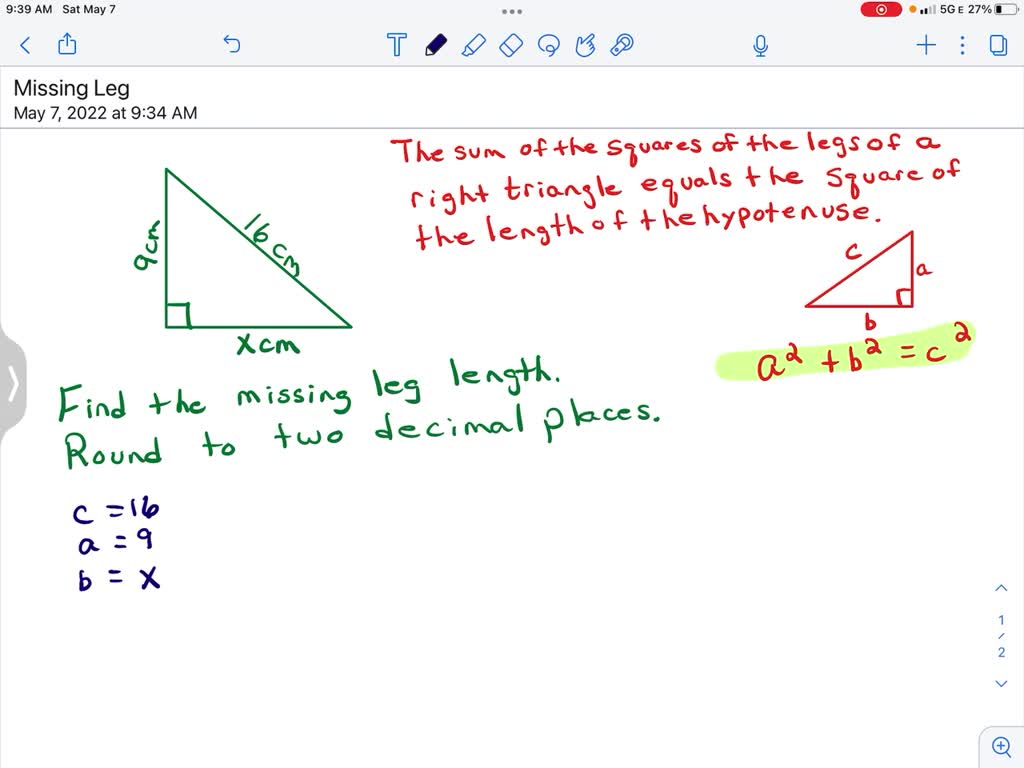 9:39 AM Sat May 7
5G E 27%
Missing Leg
May 7, 2022 at 9:34 AM
The sum of the squares of the legs of a
right triangle equals the square of
the length of the hypotenuse.
9cm
16 cm
x cm
c
a
b
a² + b² = c²
Find the missing leg length.
Round to two decimal places.
c = 16
a = 9
b = x
1
/
2